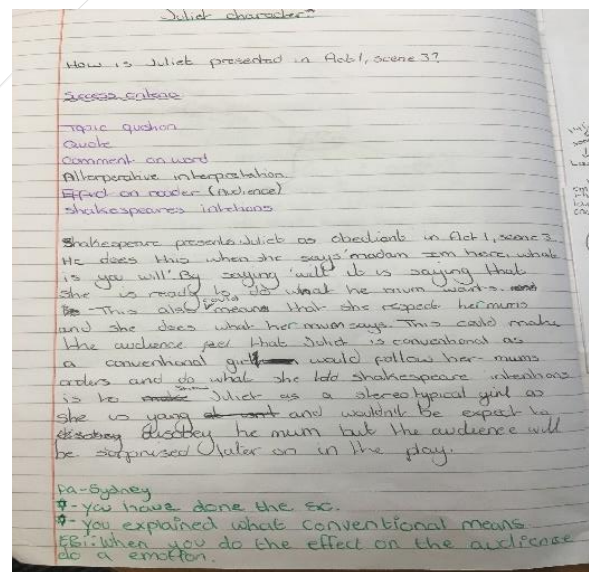 Juliet character?
How is Juliet presented in Act 1, scene 3?
Success criteria
Topic question
Quote
Comment on word
Alterperative interpretation
Effect on reader (Audience)
Shakespeares intentions
Shakespeare presents Juliet as obedient in Act 1, scene 3
He does this when she says 'madam I'm here, what
is you will'. By saying 'will' it is saying that
she is ready to do what he mum wants.
This also could means that she respect her mums
and she does what her mum says. This could make
the audience feel that Juliet is conventional as
a conventional girl would follow her mums
orders and do what she told Shakespeare intentions
is to show Juliet as a stereotypical girl as
she is yong and wouldn't be expect to
disobey he mum but the audience will
be sorpnised later on in the play.
Pa-Sydney
- you have done the sc.
- you explained what conventional means
EBI: When you do the effect on the audience
do a emotion.